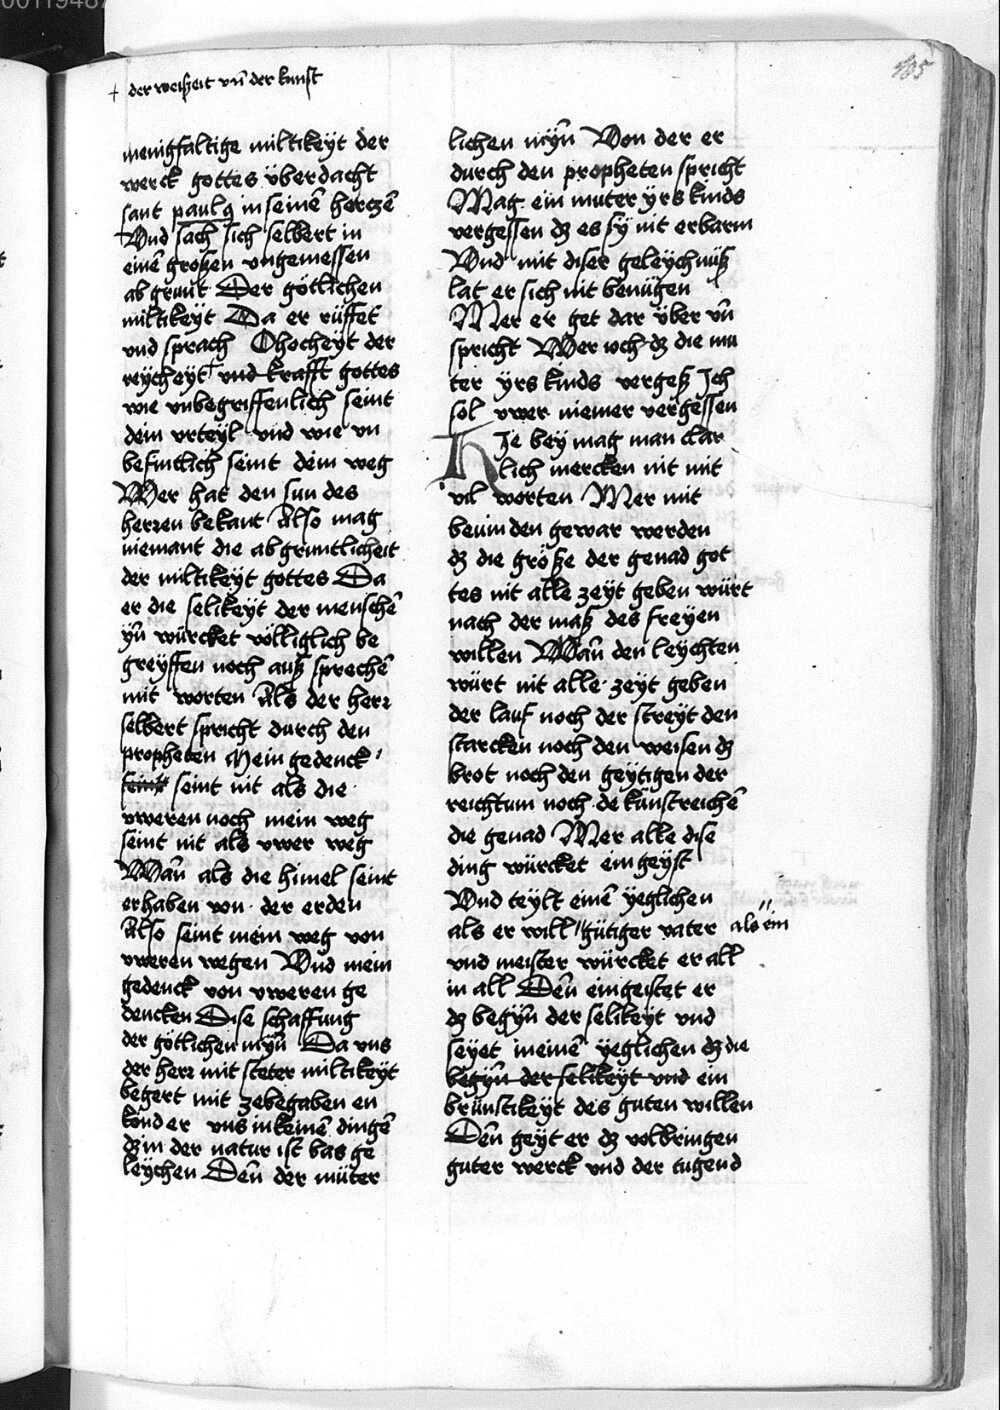 00119487
185
+ der weißeit vn̄ der kunst
menigfaltige miltikeÿt der
werck gottes v̈berdacht
sant paulꝯ in seinē herczē
Vnd sach sich selbert in
einē großen vngemessen
ab grunt Der götlichen
miltikeÿt Da er rüffet
vnd sprach O hocheÿt der
reÿcheÿt + vnd krafft gottes
wie vnbegriffenlich seint
dein vrteyl vnd wie vn
befintlich seint dein weg
Wer hat den sun des
herren bekant Also mag
niemant die abgruntlicheit
der miltikeÿt gottes Da
er die selikeÿt der menschē
ÿn̄ würcket völliglich be
greÿffen noch auß sprechē
mit worten Als der herr
selbert spricht durch den
propheten Mein gedenck
seint nit als die
vweren noch mein weg
seint nit als vwer weg
Wān als die himel seint
erhaben von der erden
Also seint mein weg von
vweren wegen Vnd mein
gedenck von vweren ge
dencken Dise schaffung
der götlichen mÿn̄ Da vns
der herr mit steter miltikeÿt
begert mit zebegaben en
kōnd er vns in keinē dingē
dz in der natur ist bas ge
leÿchen Den̄ der müter
lichen mÿn̄ Von der er
durch den propheten spricht
Mag ein muter ÿrs kinds
vergessen dz es sÿ nit erbarm
Vnd mit diser geleÿchnüß
lat er sich nit benügen
Mer er get dar v̈ber vn̄
spricht Wer ioch dz die mu
ter ÿrs kinds vergeß Ich
sol vwer niemer vergessen
HIe beÿ mag man clar
lich mercken nit mit
vil worten Mer mit
beuinden gewar werden
dz die größe der genad got
tes nit alle zeÿt geben würt
nach der maß des freyen
willen Wan̄ den leÿchten
würt nit alle zeÿt geben
der lauf noch der streÿt den
starcken noch den weisen dz
brot noch den geÿtigen der
reichtum noch dē kunstreichē
die genad Mer alle dise
ding würcket ein geÿst
Vnd teÿlt einē ÿeglichen
als er will " gütiger vater " als ein
vnd meister würcket er all
in all Den̄ eingeistet er
dz begÿn̄ der selikeÿt vnd
seÿet in einē ÿeglichen dz die
begÿn̄ der selikeÿt vnd ein
brünstikeÿt des guten willen
Den̄ geÿt er dz volbringen
guter werck vnd der tugend